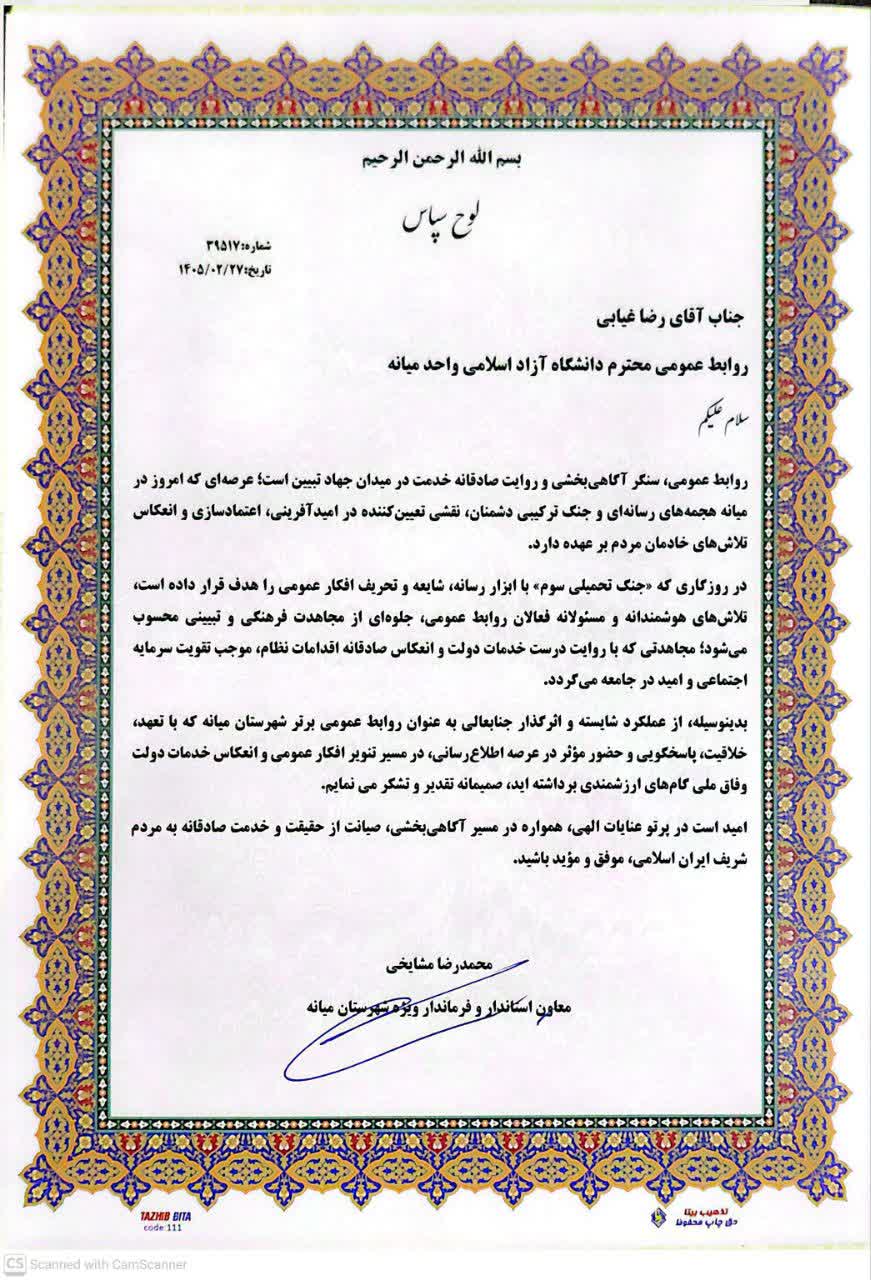 بسم الله الرحمن الرحیم
لوح سپاس
شماره:۳۹۵۱۷
تاریخ:۱۴۰۵/۰۲/۲۷
جناب آقای رضا غیابی
روابط عمومی محترم دانشگاه آزاد اسلامی واحد میانه
سلام علیکم
روابط عمومی، سنگر آگاهی‌بخشی و روایت صادقانه خدمت در میدان جهاد تبیین است؛ عرصه‌ای که امروز در
میانه هجمه‌های رسانه‌ای و جنگ ترکیبی دشمنان، نقشی تعیین‌کننده در امیدآفرینی، اعتمادسازی و انعکاس
تلاش‌های خادمان مردم بر عهده دارد.
در روزگاری که «جنگ تحمیلی سوم» با ابزار رسانه، شایعه و تحریف افکار عمومی را هدف قرار داده است،
تلاش‌های هوشمندانه و مسئولانه فعالان روابط عمومی، جلوه‌ای از مجاهدت فرهنگی و تبیینی محسوب
می‌شود؛ مجاهدتی که با روایت درست خدمات دولت و انعکاس صادقانه اقدامات نظام، موجب تقویت سرمایه
اجتماعی و امید در جامعه می‌گردد.
بدینوسیله، از عملکرد شایسته و اثرگذار جنابعالی به عنوان روابط عمومی برتر شهرستان میانه که با تعهد،
خلاقیت، پاسخگویی و حضور مؤثر در عرصه اطلاع‌رسانی، در مسیر تنویر افکار عمومی و انعکاس خدمات دولت
وفاق ملی گام‌های ارزشمندی برداشته اید، صمیمانه تقدیر و تشکر می نمایم.
امید است در پرتو عنایات الهی، همواره در مسیر آگاهی‌بخشی، صیانت از حقیقت و خدمت صادقانه به مردم
شریف ایران اسلامی، موفق و مؤید باشید.
محمدرضا مشایخی
معاون استاندار و فرماندار ویژه شهرستان میانه
TAZHIB BITA
code:111
تذهیب بیتا
حق چاپ محفوظ
CS Scanned with CamScanner